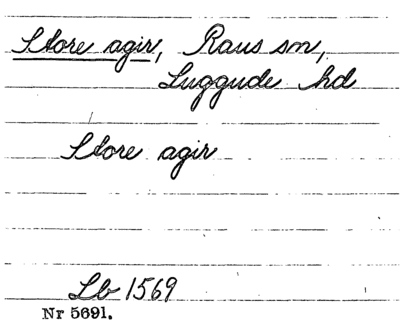 Store agir, Raus sn,
Luggude hd
Store agir
Lb 1569
Nr 5691.